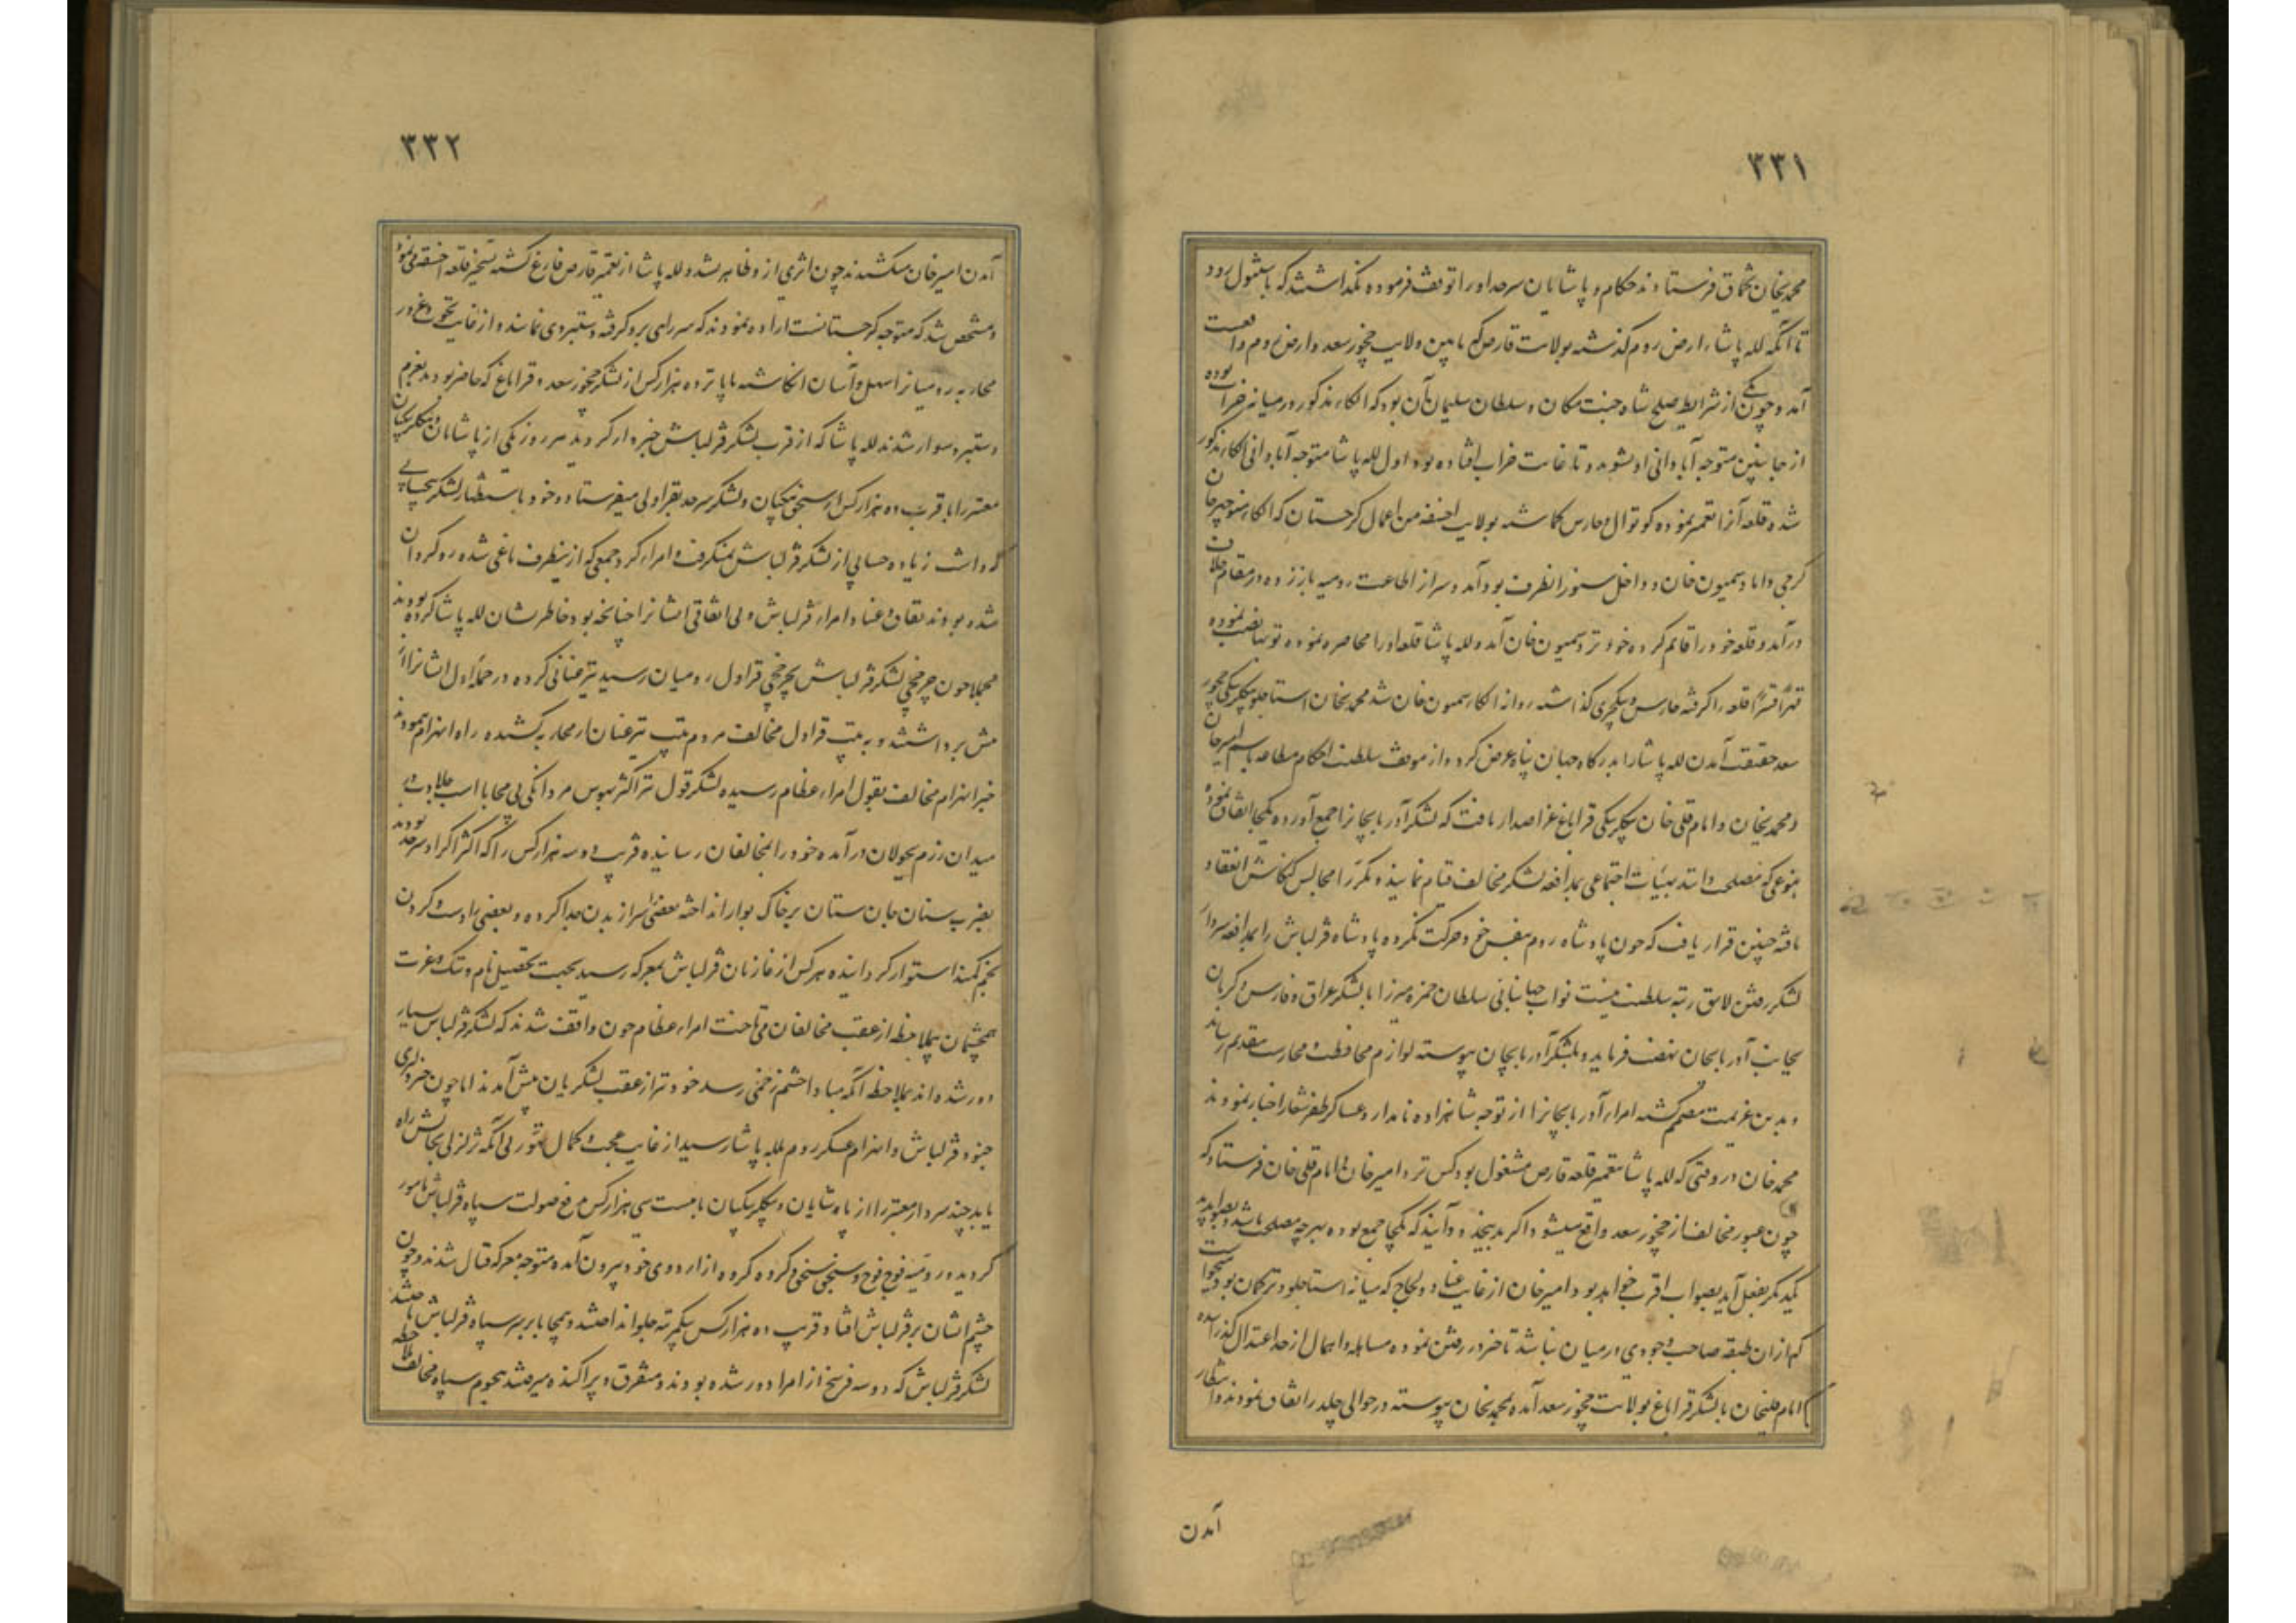 ۳۳۱
محمدیخان تخماق فرستادند حکام و پاشایان سرحد او را توقف فرموده نگذاشتند که باستنبول رود
تا آنکه لله پاشا از ارض روم گذشته بولایت قارص که مابین ولایت چخور سعد و ارض روم واقعست
آمد و چون یکی از شرایط صلح شاه جنت مکان و سلطان سلیمان آن بود که الکاء مذکور در میانه خراب بوده
از جانبین متوجه آبادانی او نشوند و تا غایت خراب افتاده بود اول لله پاشا متوجه آبادانی الکاء مذکور
شده قلعه آنرا تعمیر نموده کوتوال و حارس گماشته بولایت اخسقه من اعمال گرجستان که الکاء منوچهر خان
گرجی داماد سمیون خان و داخل سنور اینطرف بود آمد و سر از اطاعت رومیه باز زده در مقام خلاف
درآمد و قلعه خود را قائم کرده خود نزد سمیون خان آمد و لله پاشا قلعه او را محاصره نموده توپها نصب نموده
قهراً قسراً قلعه را گرفته حارس و ینکچری گذاشته روانه الکاء سمیون خان شد محمدیخان استاجلو بیگلربیگی چخور
سعد حقیقت آمدن لله پاشا را بدرگاه جهان پناه عرض کرد و از موقف سلطنت احکام مطاعه باسم امیرخان
و محمدیخان و امام قلی خان بیگلربیگی قراباغ عز اصدار یافت که لشکر آذربایجانرا جمع آورده یکجا اتفاق نموده
بنوعی که مصلحت دانند بهیئات اجتماعی بمدافعه لشکر مخالف قیام نمایند و مکررا مجالس کنکاش انعقاد
یافته چنین قرار یافت که چون پادشاه روم بنفس خود حرکت نکرده پادشاه قزلباش را بمدافعه سردار
لشکر رفتن لایق رتبه سلطنت نیست نواب جهانبانی سلطان حمزه میرزا با لشکر عراق و فارس و کرمان
بجانب آذربایجان نهضت فرماید و بلشکر آذربایجان پیوسته لوازم محافظت و محارست بتقدیم رساند
و بدین عزیمت مصمم گشته امراء آذربایجانرا از توجه شاهزاده نامدار و عساکر ظفر شعار اخبار نمودند
محمدخان در وقتی که لله پاشا بتعمیر قلعه قارص مشغول بود کس نزد امیرخان و امام قلی خان فرستاد که
چون عبور مخالف از چخور سعد واقع میشود اگر بدینحدود آیند که یکجا جمع بوده بهرچه مصلحت باشد و بصوابدید
یکدیگر بفعل آید بصواب اقرب خواهد بود امیرخان از غایت عناد و لجاج که میانه استاجلو و ترکمان بود میخواست
که از ان طبقه صاحب وجودی در میان نباشد تاخر در رفتن نموده مساهله و اهمال از حد اعتدال گذرانیده
امام قلیخان با لشکر قراباغ بولایت چخور سعد آمده بمحمدیخان پیوسته در حوالی چلدر اتفاق نمودند و انتظار
آمدن
۳۳۲
آمدن امیرخان میکشیدند چون اثری از و ظاهر نشد و لله پاشا از تعمیر قارص فارغ گشته تسخیر قلعه اخسقه می نمود
و مشخص شد که متوجه گرجستانست اراده نمودند که سر راهی برو گرفته دستبردی نمایند و از غایت تهور و غرور
محاربه رومیانرا سهل و آسان انگاشته با پانزده هزار کس از لشکر چخور سعد و قراباغ که حاضر بودند بعزم
دستبرد سوار شدند لله پاشا که از قرب لشکر قزلباش خبردار گردید هر روز یکی از پاشایان و بیگلربیگیان
معتبر را با قرب ده هزار کس از سنجق بیگیان و لشکر سرحد بقراولی میفرستاد و خود باستظهار لشکر بیحسابی
که داشت زیاده حسابی از لشکر قزلباش نمیگرفت و امراء کرد و جمعی که از ینطرف یاغی شده روگردان
شده بودند نفاق و عناد امراء قزلباش و بی اتفاقی ایشانرا چنانچه بود خاطرنشان لله پاشا کرده بودند
مجملا چون چرخچی لشکر قزلباش بچرخچی قراول رومیان رسید تیز عنانی کرده در حمله اول ایشانرا از
پیش برداشتند و به تیپ قراول مخالف مردم تیپ نیز عنان از محاربه کشیده راه انهزام پیمودند
خبر انهزام مخالف بقول امراء عظام رسیده لشکر قول نیز اکثر بهوس مردانگی بی محابا اسب جلادت به
میدان رزم بجولان درآمده خود را بمخالفان رسانیده قریب دو سه هزار کس را که اکثر اکراد سرحد بودند
بضرب سنان جان ستان بر خاک بوار انداخته بعضی را سر از بدن جدا کرده و بعضی را دست و گردن
بخم کمند استوار گردانیده هر کس از غازیان قزلباش بمعرکه رسید بجهت تحصیل نام و ننگ و غیرت
همچشمان بیملاحظه از عقب مخالفان می تاخت امراء عظام چون واقف شدند که لشکر قزلباش بسیار
دور شده اند بملاحظه آنکه مبادا چشم زخمی رسد خود نیز از عقب لشکریان پیش آمدند اما چون خبر دلیری
جنود قزلباش و انهزام عسکر روم بلله پاشا رسید از غایت عجب و کمال تهور بی آنکه تزلزلی بحالش راه
یابد چند سردار معتبر را از پاشایان و بیگلربیگیان با بیست سی هزار کس بدفع صولت سپاه قزلباش مامور
گردید و رومیه فوج فوج و سنجق سنجق و گروه گروه از اردوی خود بیرون آمده متوجه معرکه قتال شدند و چون
چشم ایشان بر قزلباش افتاد قریب ده هزار کس بیکمرتبه جلو انداختند و بیمحابا بر سر سپاه قزلباش تاختند
لشکر قزلباش که دو سه فرسخ از امرا دور شده بودند و متفرق و پراکنده میرفتند بهجوم سپاه مخالف